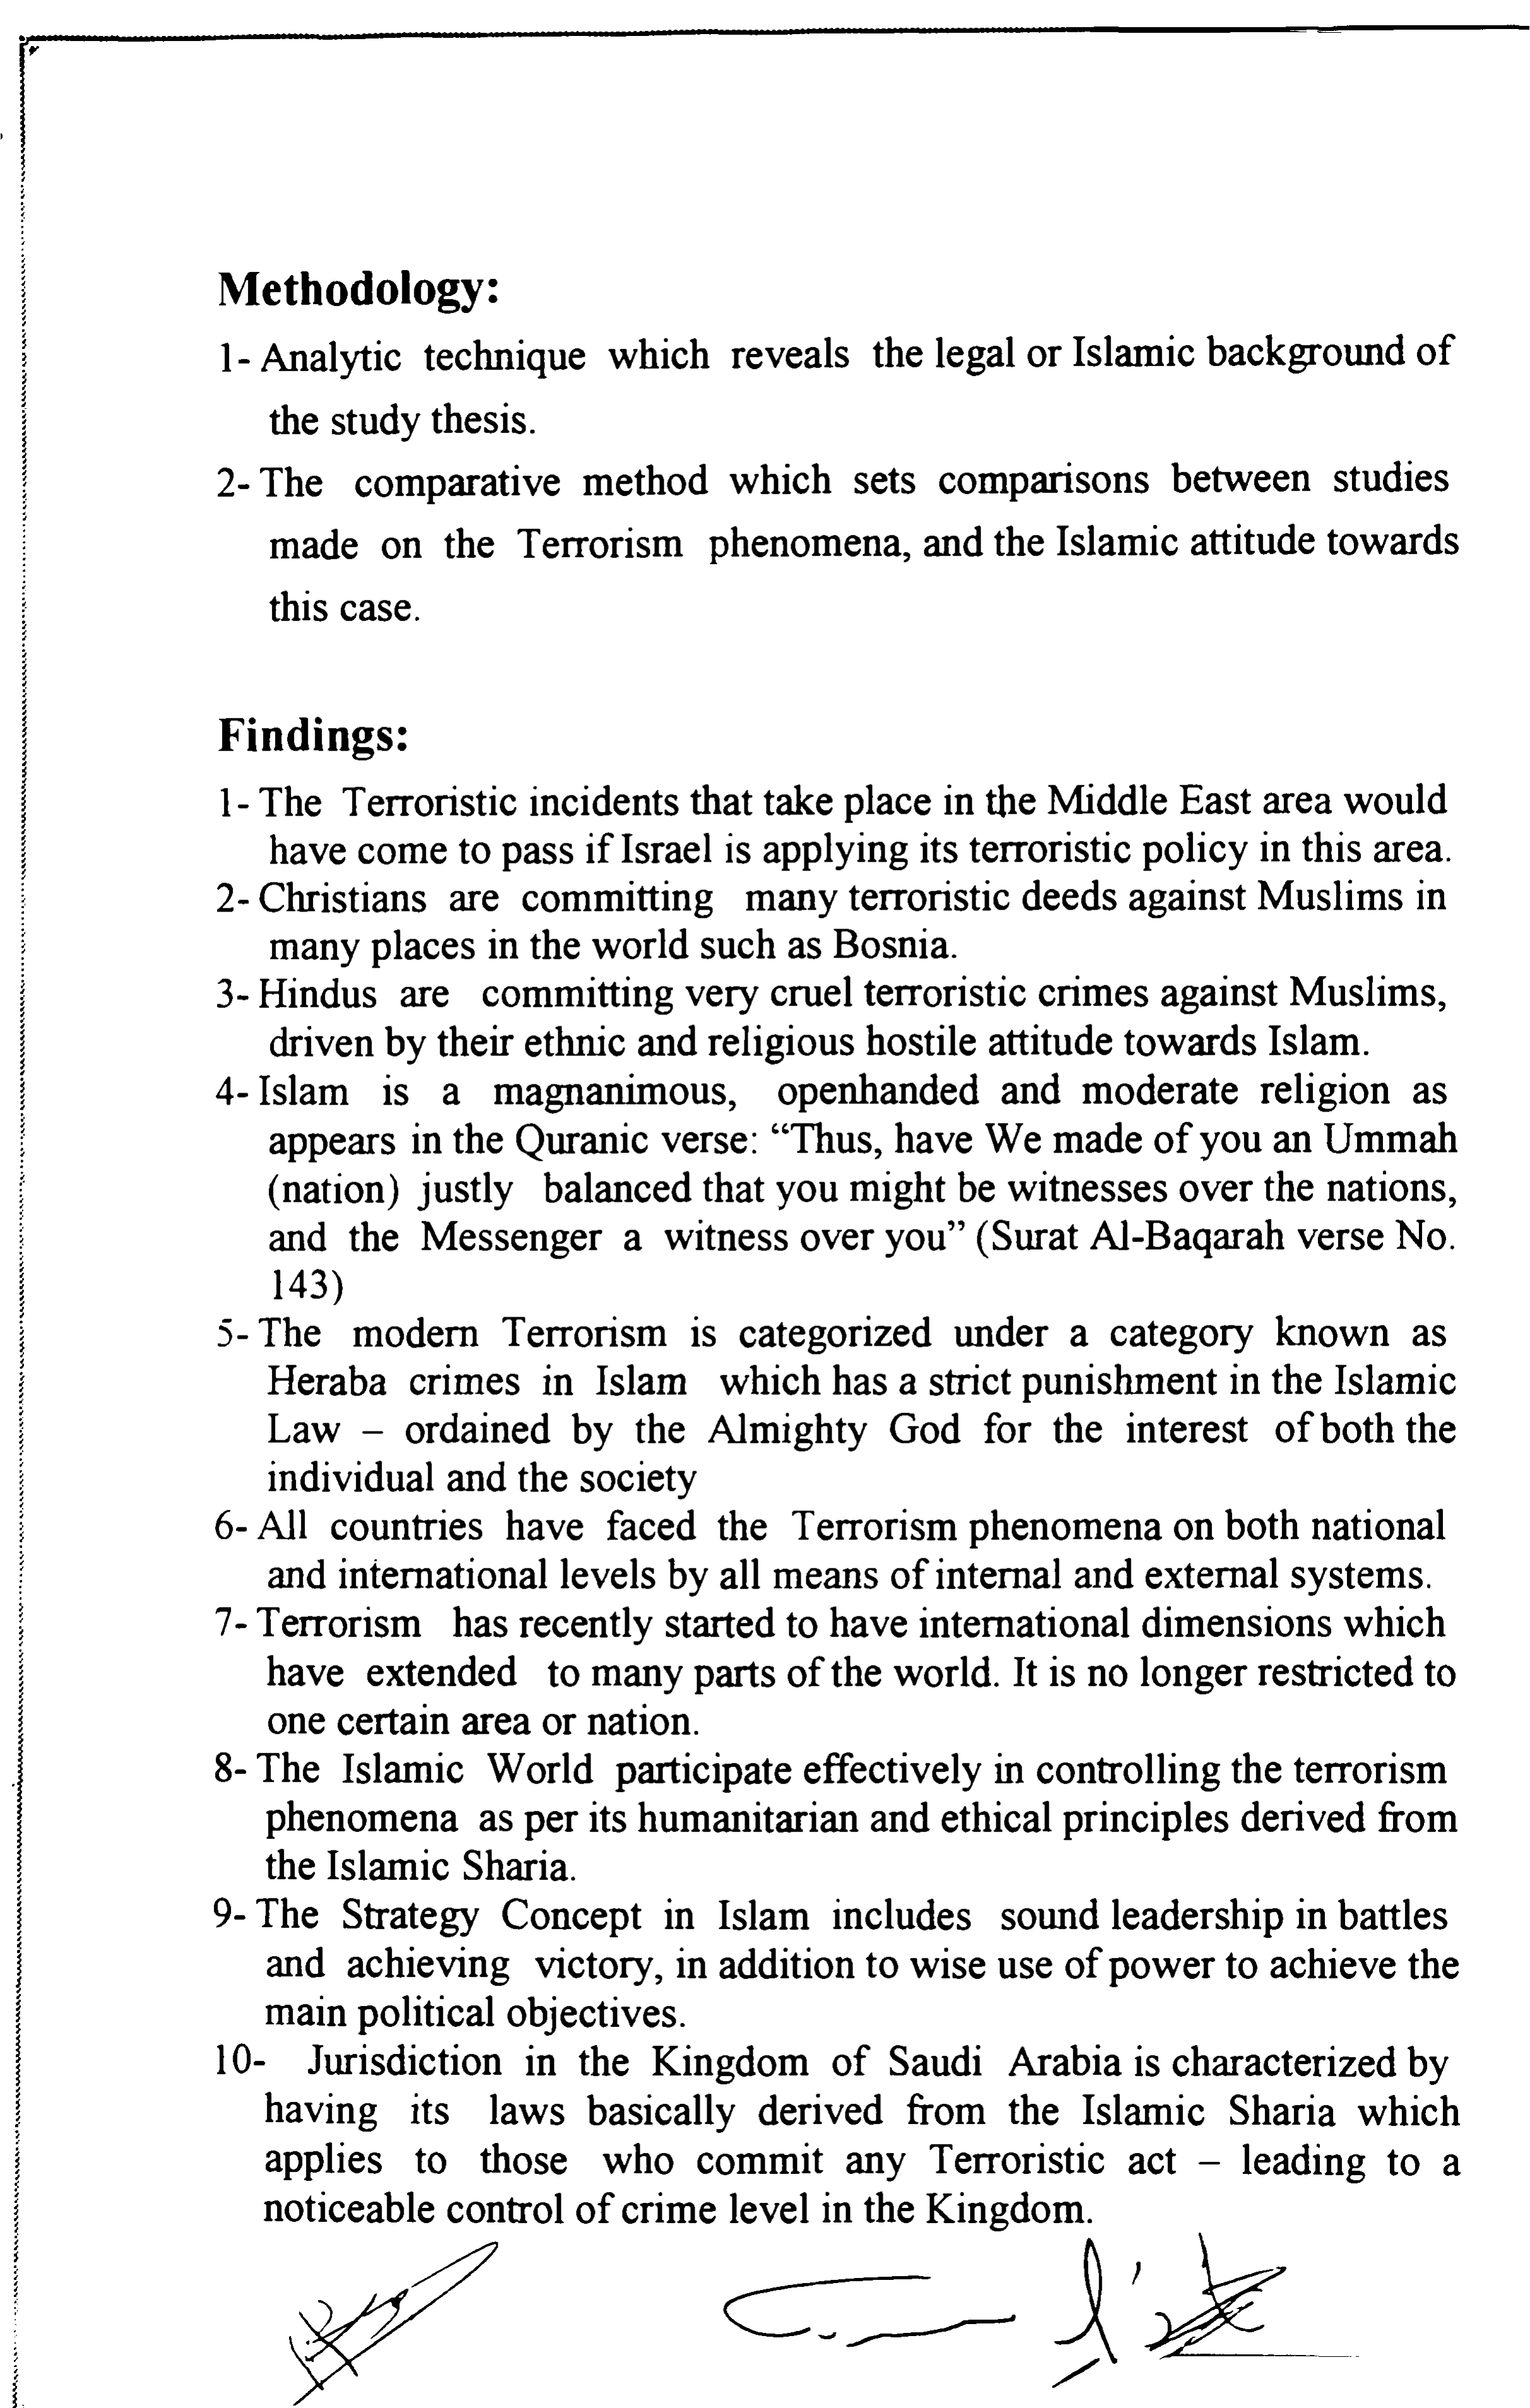 Methodology:
1- Analytic technique which reveals the legal or Islamic background of
the study thesis.
2- The comparative method which sets comparisons between studies
made on the Terrorism phenomena, and the Islamic attitude towards
this case.
Findings:
1- The Terroristic incidents that take place in the Middle East area would
have come to pass if Israel is applying its terroristic policy in this area.
2- Christians are committing many terroristic deeds against Muslims in
many places in the world such as Bosnia.
3- Hindus are committing very cruel terroristic crimes against Muslims,
driven by their ethnic and religious hostile attitude towards Islam.
4- Islam is a magnanimous, openhanded and moderate religion as
appears in the Quranic verse: “Thus, have We made of you an Ummah
(nation) justly balanced that you might be witnesses over the nations,
and the Messenger a witness over you” (Surat Al-Baqarah verse No.
143)
5- The modern Terrorism is categorized under a category known as
Heraba crimes in Islam which has a strict punishment in the Islamic
Law – ordained by the Almighty God for the interest of both the
individual and the society
6- All countries have faced the Terrorism phenomena on both national
and international levels by all means of internal and external systems.
7- Terrorism has recently started to have international dimensions which
have extended to many parts of the world. It is no longer restricted to
one certain area or nation.
8- The Islamic World participate effectively in controlling the terrorism
phenomena as per its humanitarian and ethical principles derived from
the Islamic Sharia.
9- The Strategy Concept in Islam includes sound leadership in battles
and achieving victory, in addition to wise use of power to achieve the
main political objectives.
10- Jurisdiction in the Kingdom of Saudi Arabia is characterized by
having its laws basically derived from the Islamic Sharia which
applies to those who commit any Terroristic act – leading to a
noticeable control of crime level in the Kingdom.